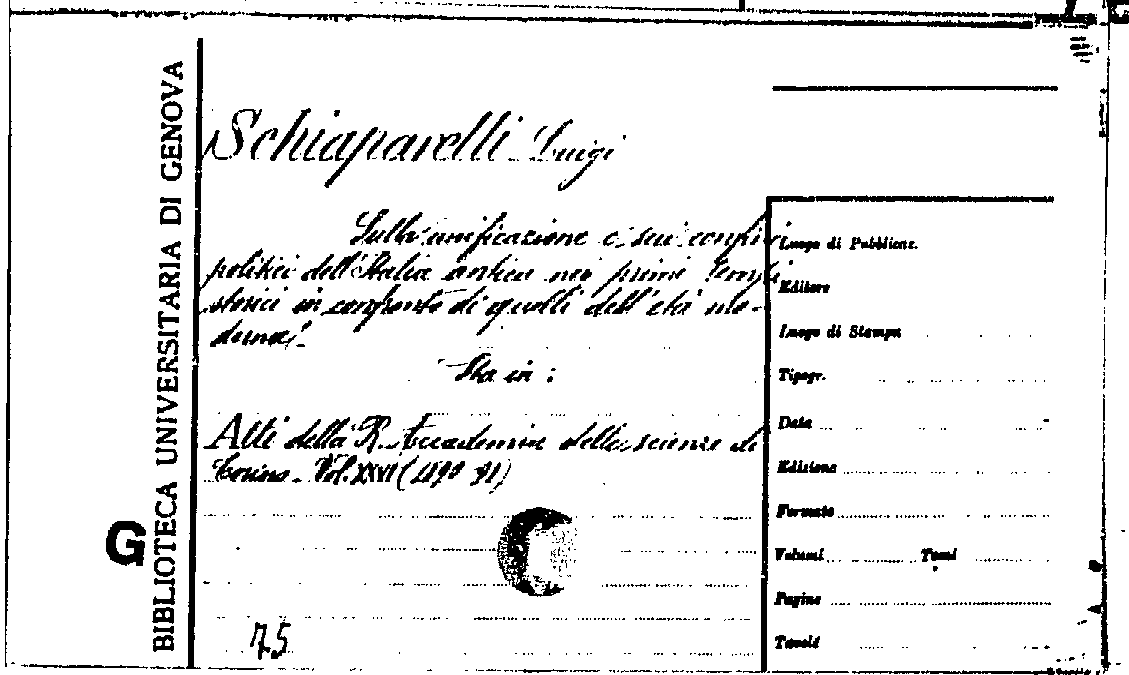 BIBLIOTECA UNIVERSITARIA DI GENOVA
G
Schiaparelli Luigi
Sulla unificazione e sui confini
politici dell'Italia antica nei primi tempi
storici in confronto di quelli dell'età mo-
derna.
Sta in :
Atti della R. Accademia delle scienze di
Torino. Vol. XXVI (1890-91)
75
Luogo di Pubblicaz.
Editore
Luogo di Stampa
Tipogr.
Data
Edizione
Formato
Volumi Tomi
Pagine
Tavole